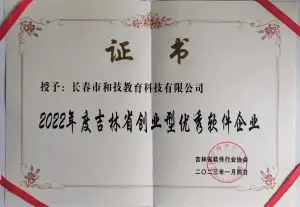 证书
授予：长春市和技教育科技有限公司
2022年度吉林省创业型优秀软件企业
吉林省软件行业协会
二〇二三年一月四日